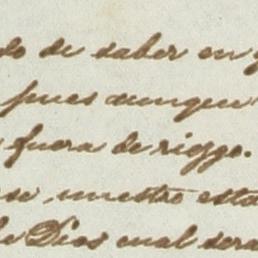 do de saber en
pues aunque
fuera de riezgo.
se, nuestro esta
de Dios cual sera